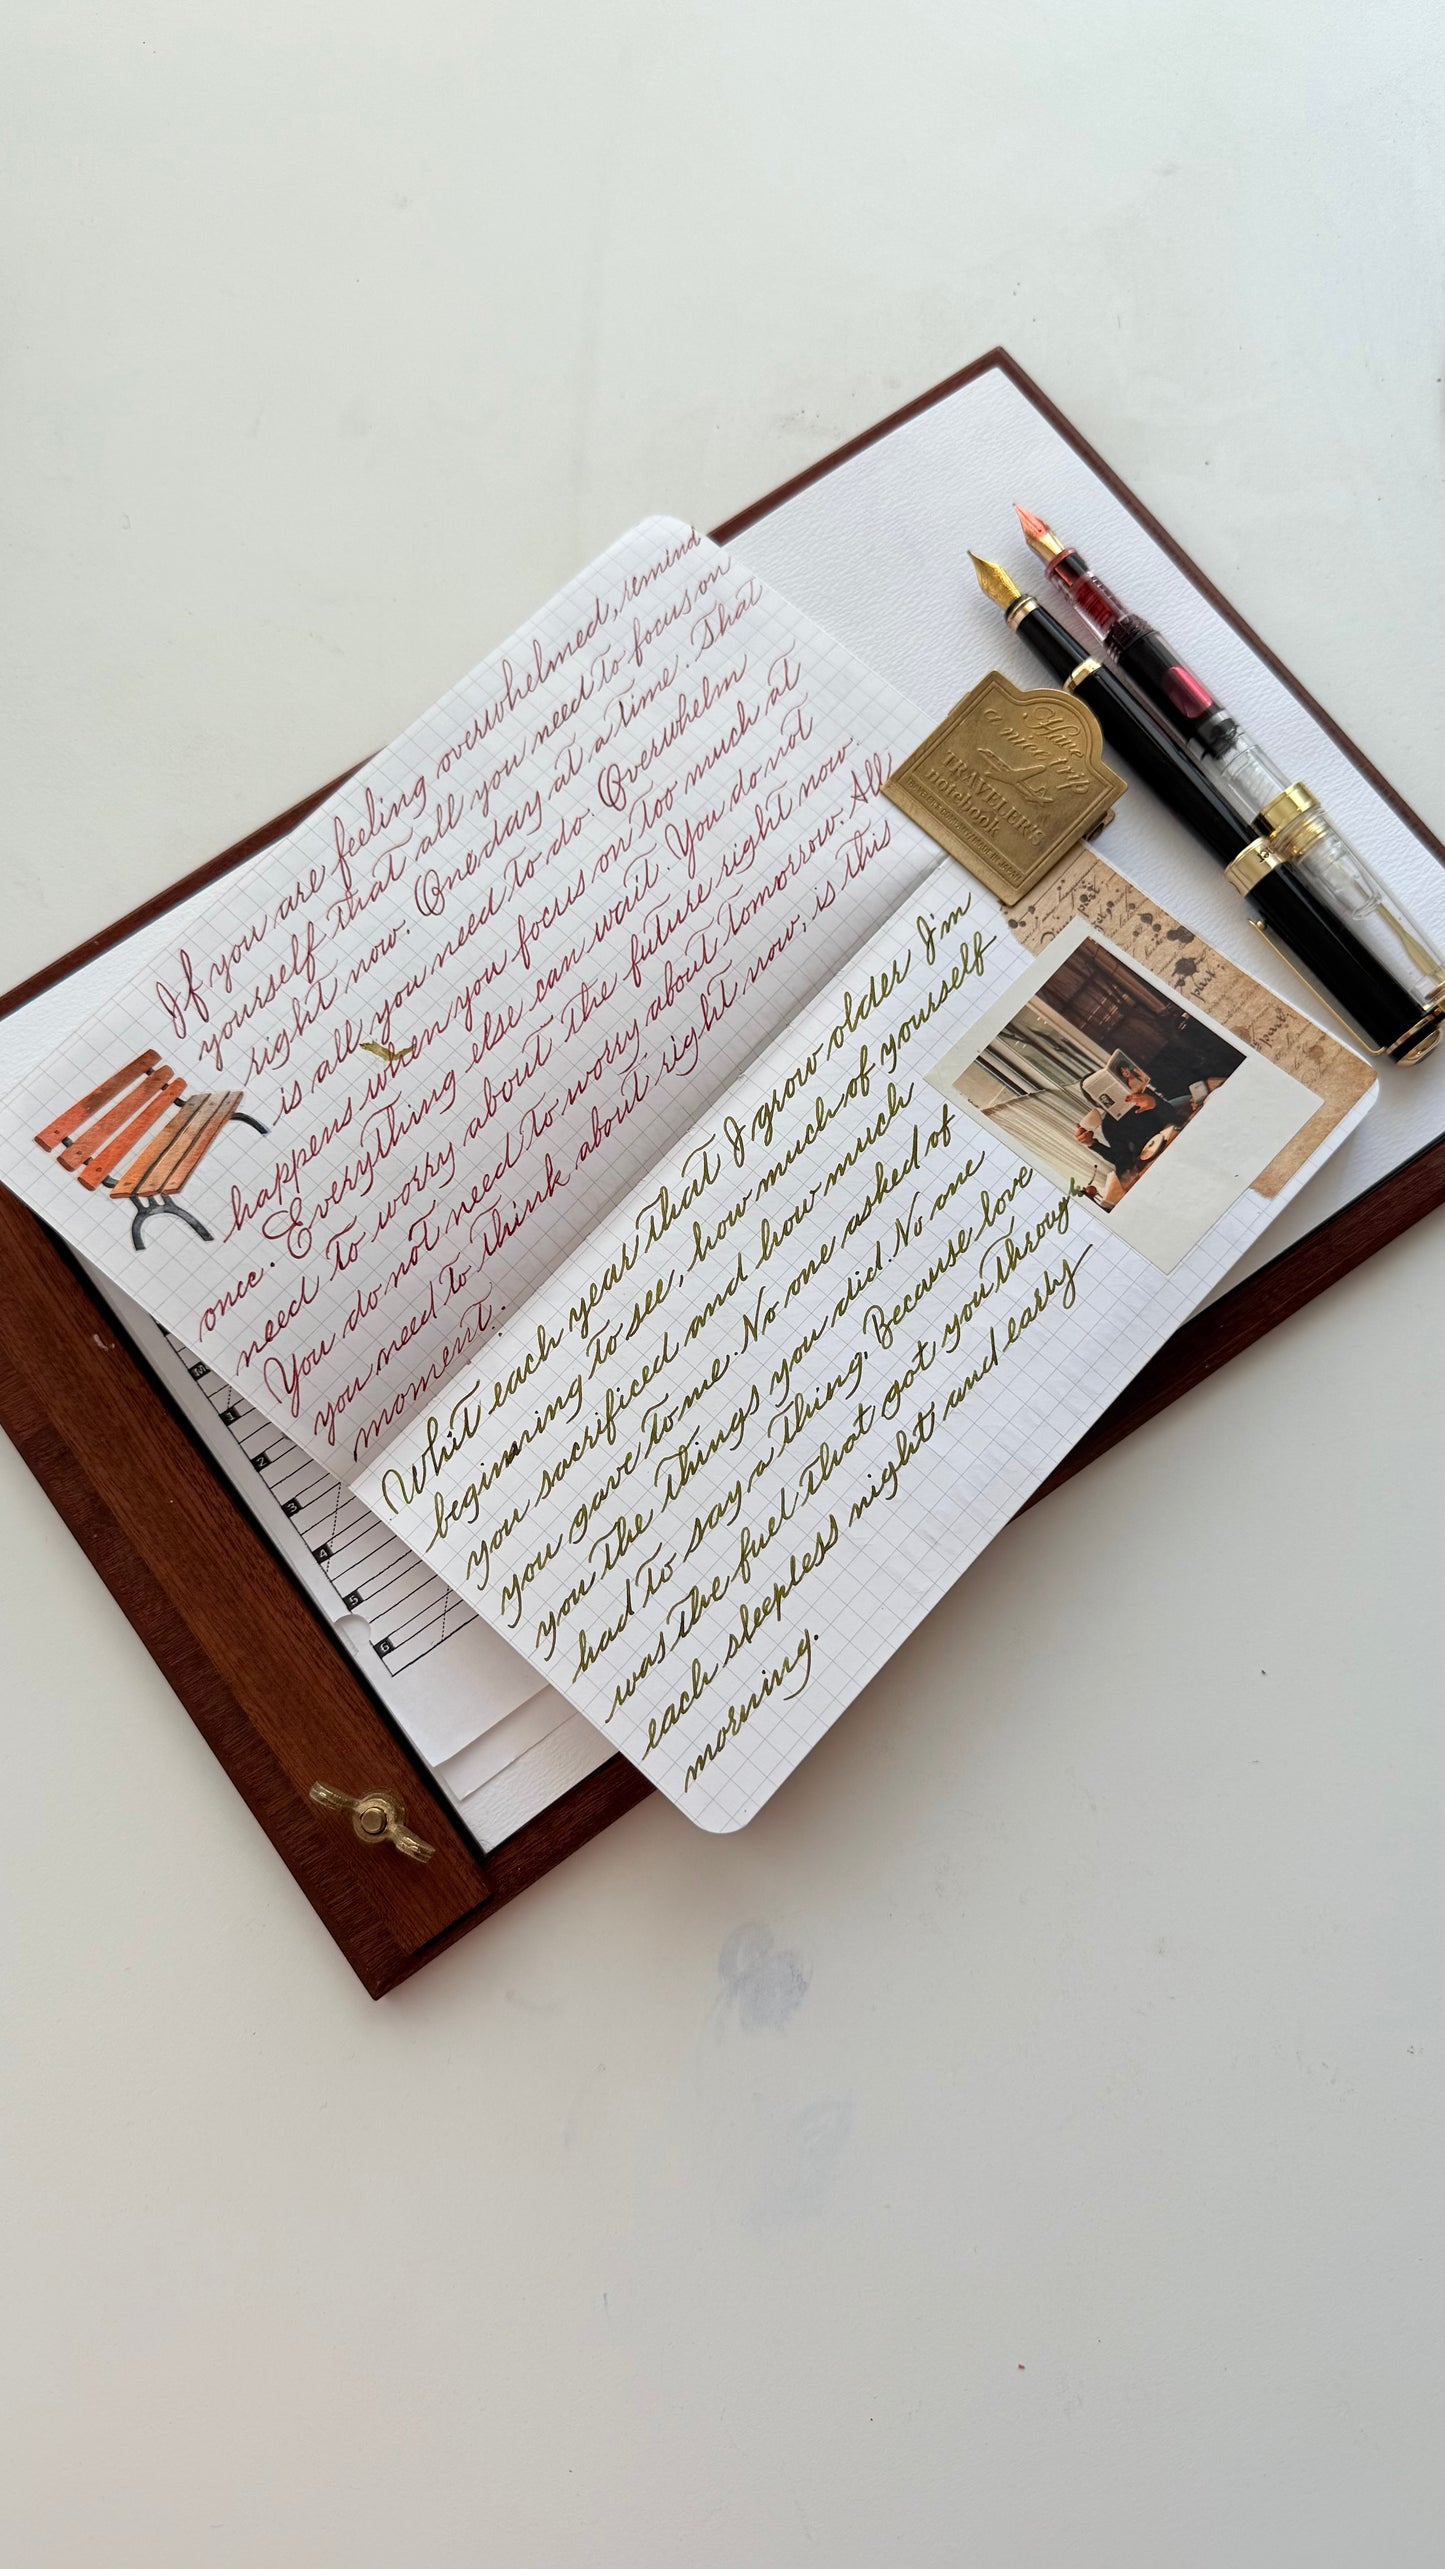 If you are feeling overwhelmed, remind
yourself that all you need to focus on
right now. One day at a time. That
is all you need to do. Overwhelm
happens when you focus on too much at
once. Everything else can wait. You do not
need to worry about the future right now.
You do not need to worry about tomorrow. All
you need to think about right now, is this
moment.
Whit each year that I grow older I'm
beginning to see, how much of yourself
you sacrificed and how much
you gave to me. No one asked of
you the things you did. No one
had to say a thing. Because love
was the fuel that got you through
each sleepless night and early
morning.
Have
a nice trip
TRAVELER'S
notebook
M
1
2
3
4
5
6